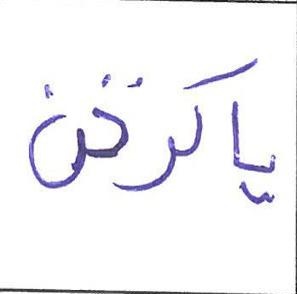 ياكرخن